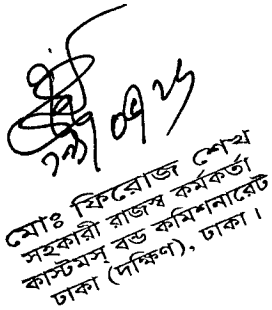 মোঃ ফিরোজ শেখ
সহকারী রাজস্ব কর্মকর্তা
কাস্টমস্ বন্ড কমিশনারেট
ঢাকা (দক্ষিণ), ঢাকা।